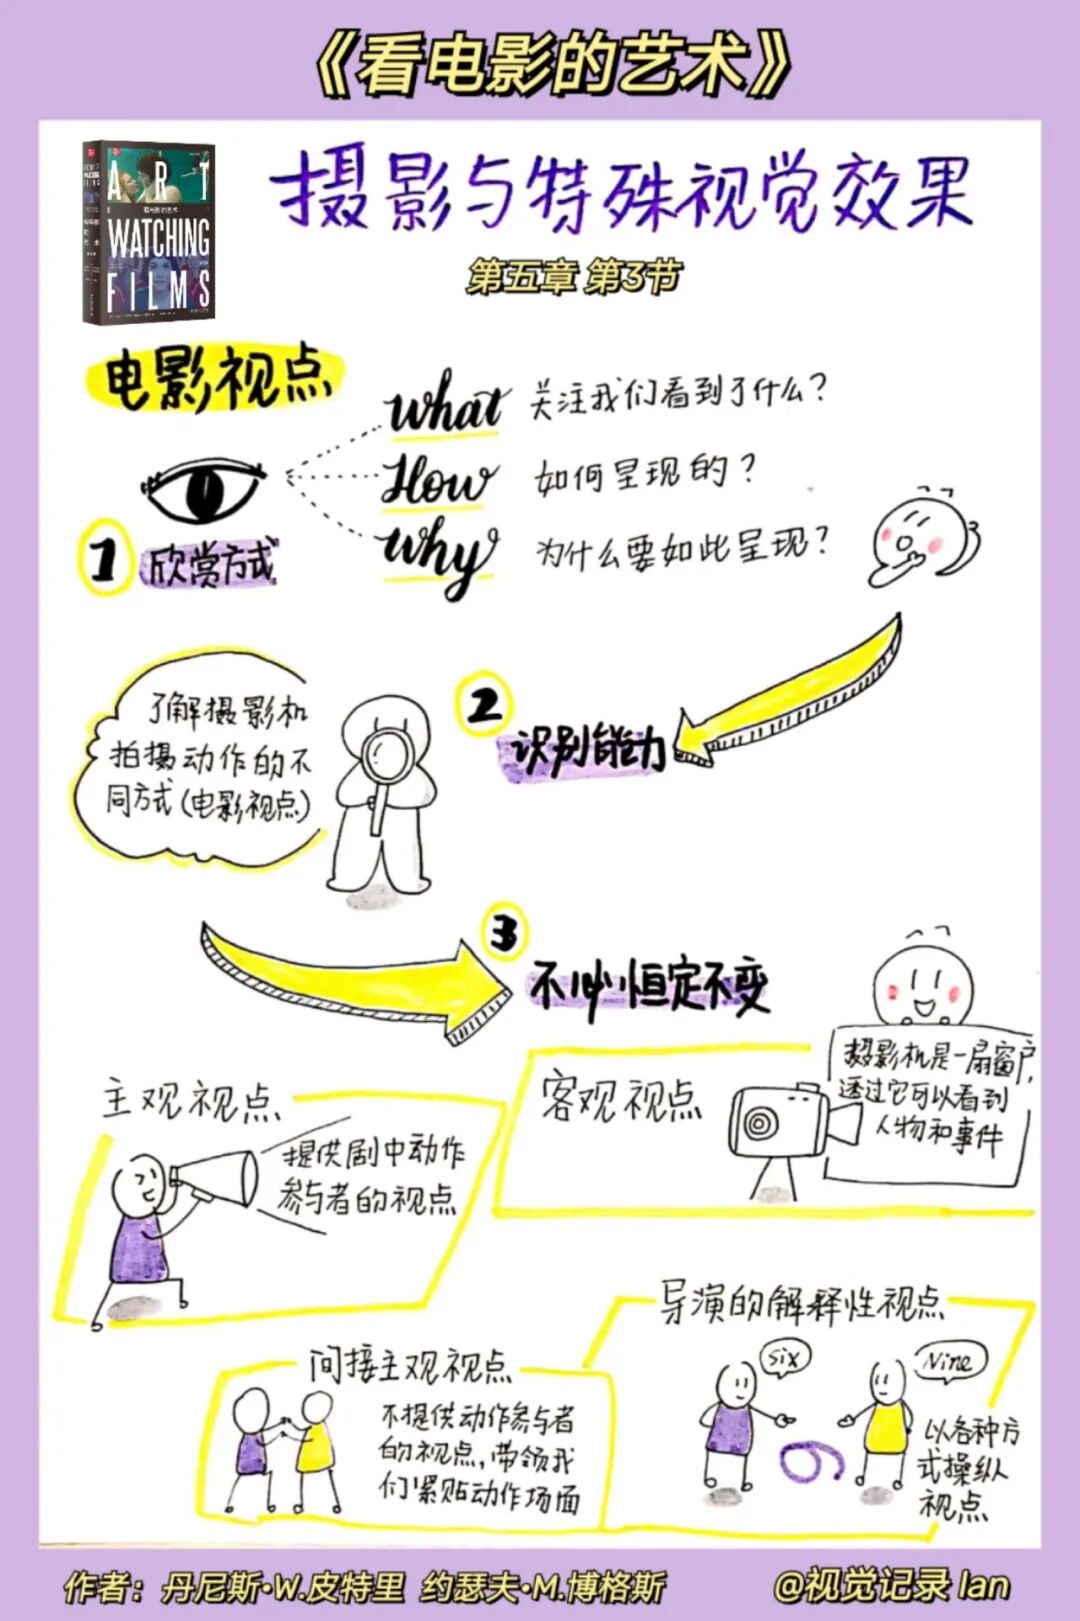 《看电影的艺术》
ART
WATCHING
FILMS
看电影的艺术
摄影与特殊视觉效果
第五章 第3节
电影视点
What 关注我们看到了什么?
How 如何呈现的?
Why 为什么要如此呈现?
1 欣赏方式
2 识别能力
了解摄影机
拍摄动作的不
同方式(电影视点)
3 不必恒定不变
主观视点
提供剧中动作
参与者的视点
客观视点
摄影机是一扇窗户,
透过它可以看到
人物和事件
间接主观视点
不提供动作参与者
的视点,带领我
们紧贴动作场面
导演的解释性视点
Six
Nine
6
以各种方
式操纵
视点
作者：丹尼斯·W.皮特里 约瑟夫·M.博格斯
@视觉记录 Ian